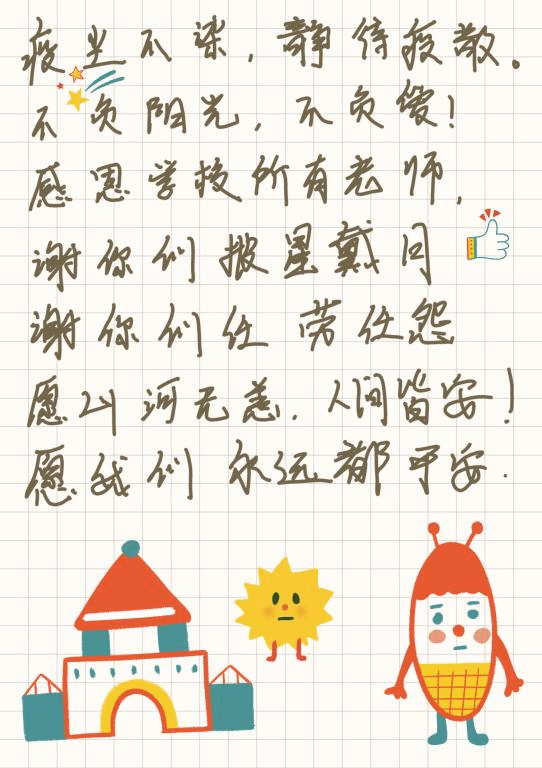 疫尘不染，静待疫散。
不负阳光，不负爱！
感恩学校所有老师，
谢你们披星戴月
谢你们任劳任怨
愿山河无恙．人间皆安！
愿我们永远都平安．